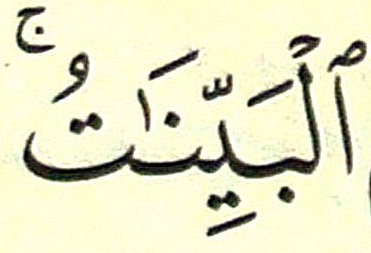 ٱلْبَيِّنَـٰتُ ۚ